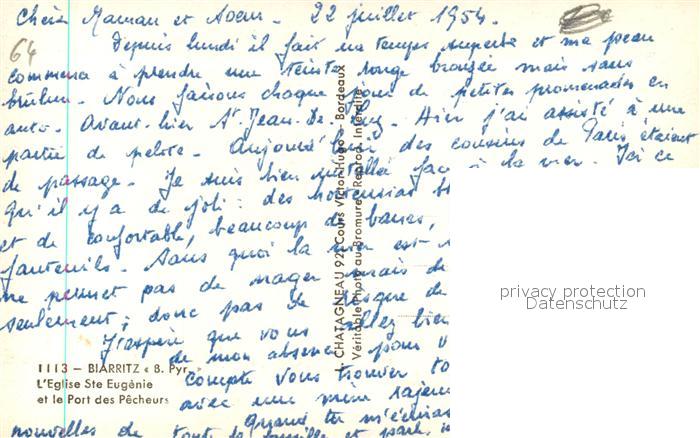 Chère Maman et Soeur - 22 juillet 1954.
64
Depuis lundi il fait un temps superbe et ma peau
commence à prendre une teinte rouge bronzée mais sans
brûlure. Nous faisons chaque jour de petites promenades en
auto. Avant-hier St Jean-De-Luz. Hier j'ai assisté à une
partie de pelote. Aujourd'hui des cousins de Paris étaient
de passage. Je suis bien installée face à la mer. Ici ce
qu'il y a de joli : des hortensias
et de confortable, beaucoup de bancs,
fauteuils. Sans quoi la mer est
ne permet pas de nager mais de
seulement ; donc pas de risque de
J'espère que vous allez bien
de mon absence pour
compte vous trouver
avec une mine
Quand tu m'écriras
nouvelles de toute la famille et
1113 – BIARRITZ « B. Pyr. »
L'Eglise Ste Eugénie
et le Port des Pêcheurs
J. CHATAGNEAU 92, Cours Victor-Hugo - Bordeaux
Véritable Photo au Bromure - Reprod. Interdite
privacy protection
Datenschutz